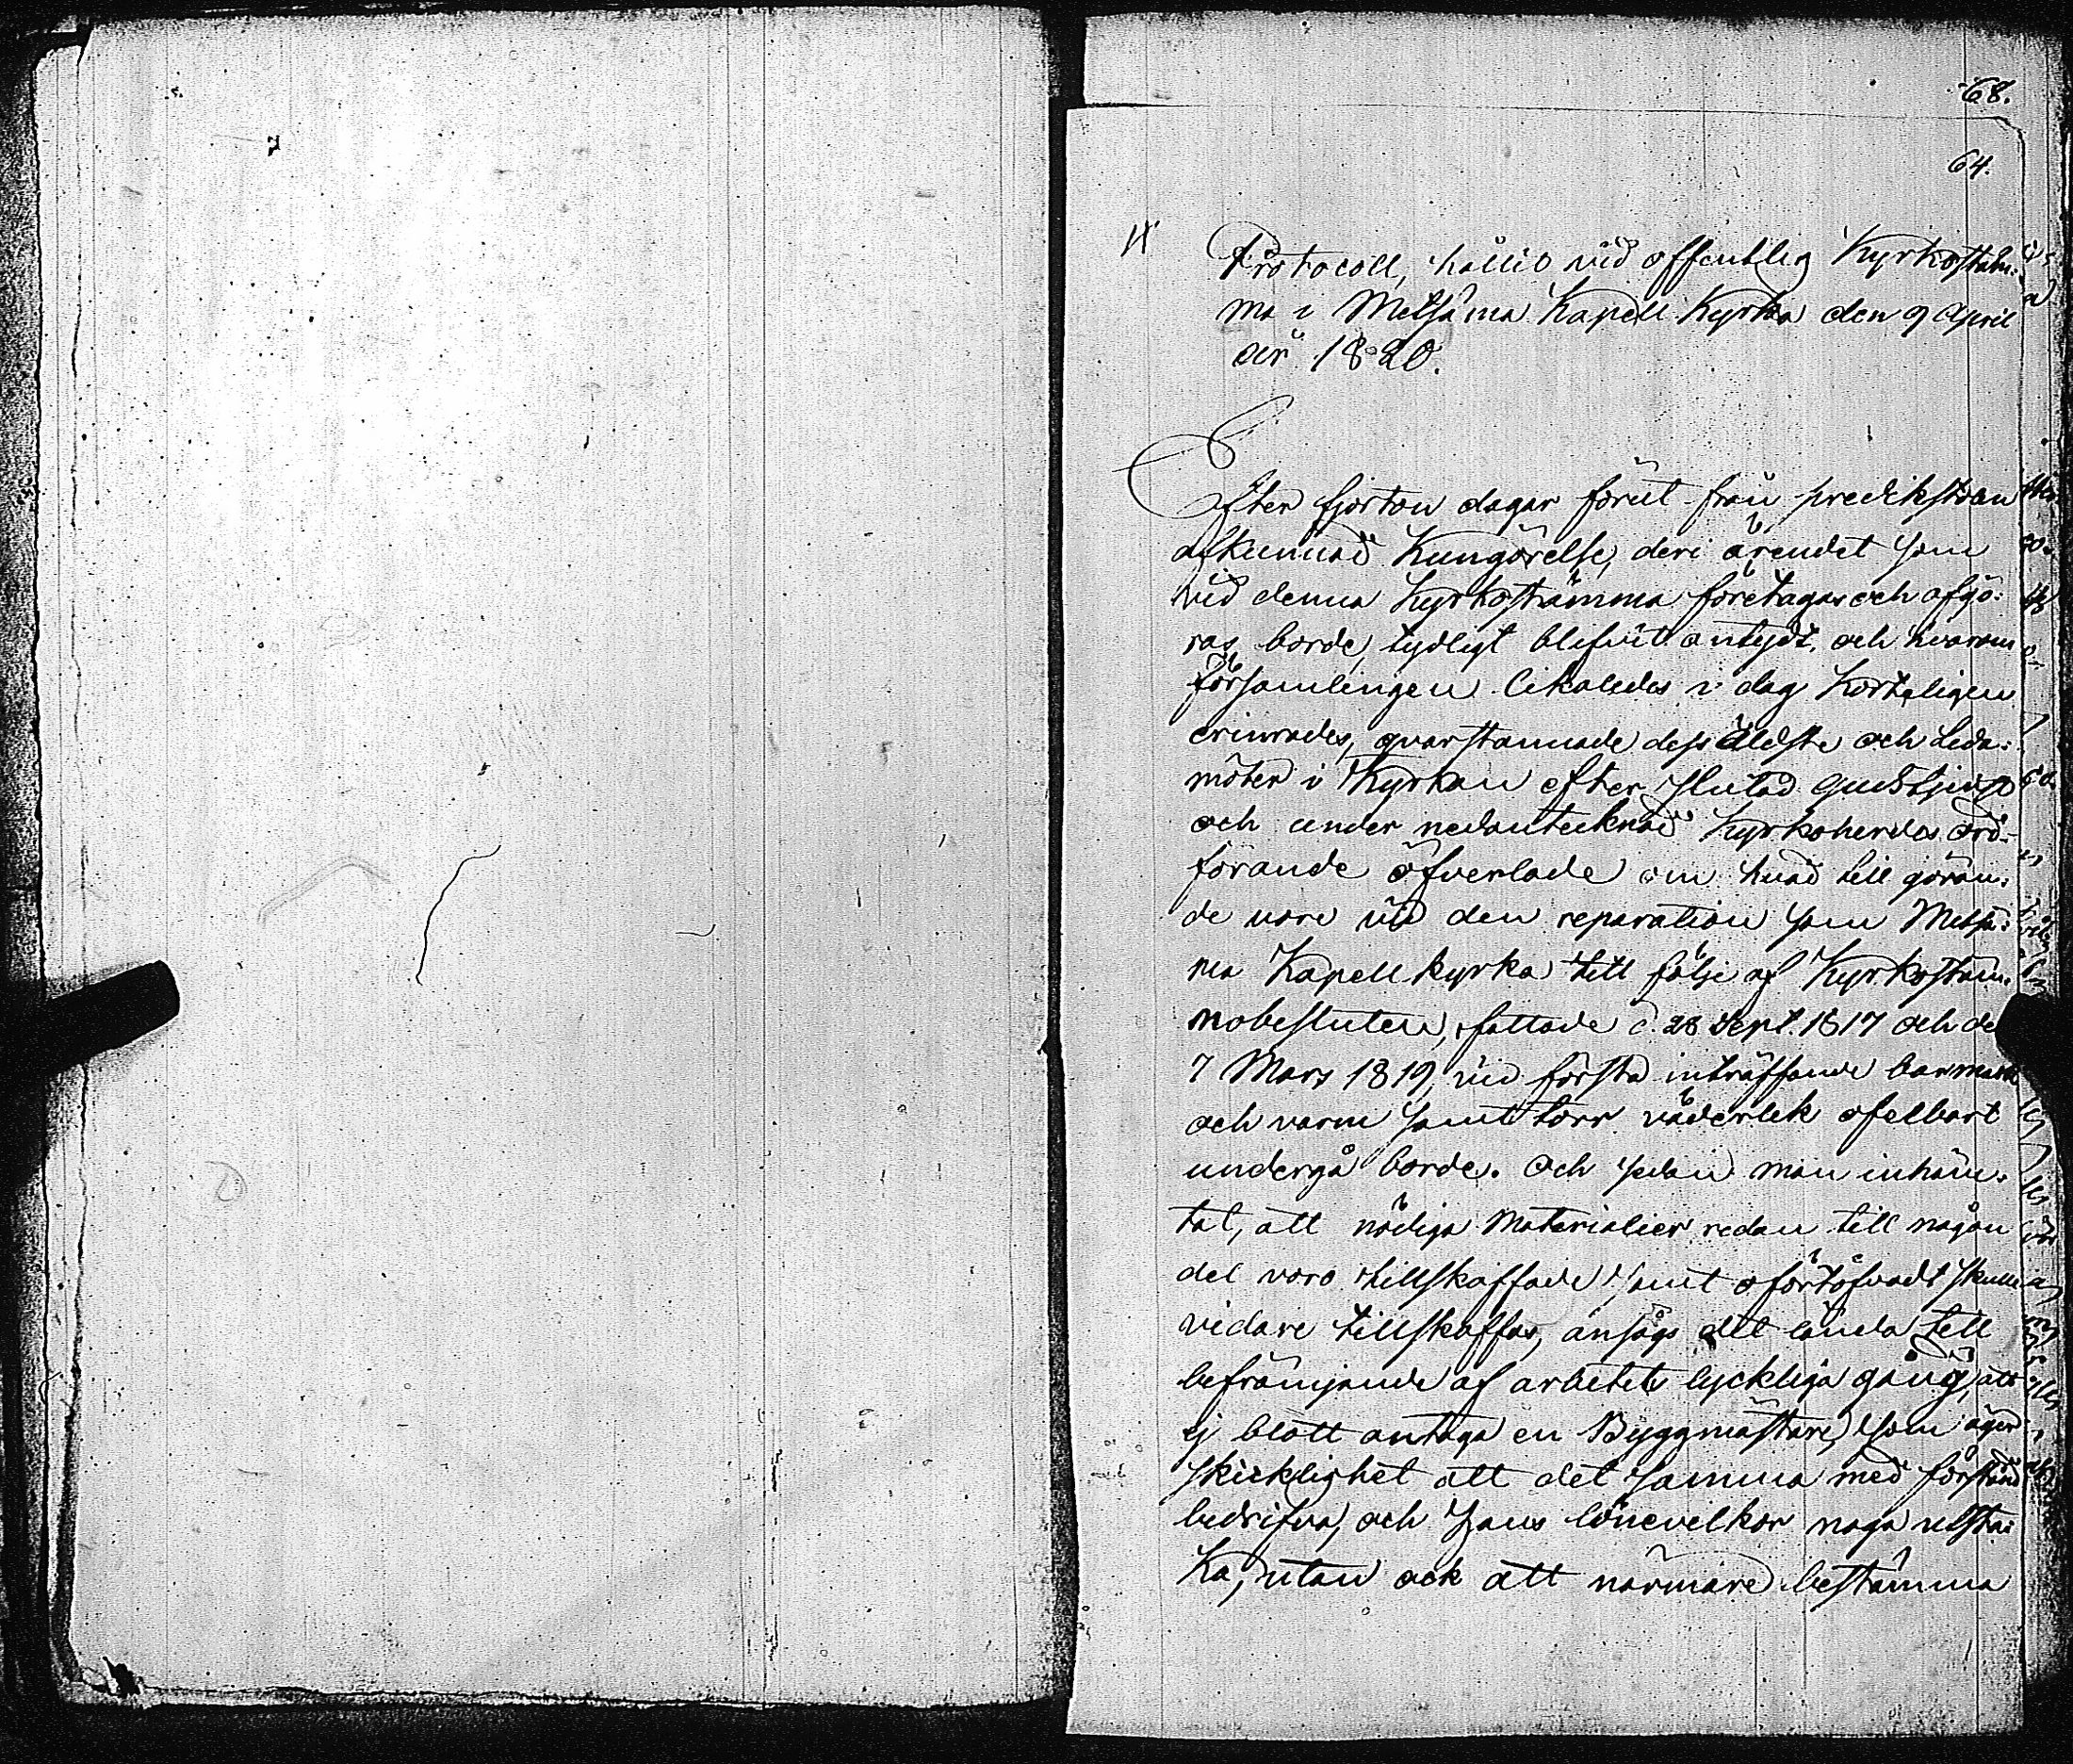 68.
64.
Protocoll, hållit vid offentlig Kyrkostäm:
ma i Metsäma Kapell Kyrka den 9 April
år 1820.
Efter fjorton dagar förut från predikstolen
afkunnad Kungörelse, deri ärendet som
vid denna Kyrkostämma företagas och afgö:
ras borde, tydligt blifvit antydt, och hvarom
Församlingen likaledes i dag korteligen
erinrades, qvarstannade dess Äldste och Leda:
möter i Kyrkan efter slutad Gudstjenst
och under nedantecknad Kyrkoherdes ord-
förande öfverlade om hvad till göran:
de vore vid den reparation som Metsä:
ma Kapell kyrka till följe af Kyrkostäm:
mobesluten, fattade d. 28 Sept. 1817 och de
7 Mars 1819, vid första inträffande barmark
och varm samt torr väderlek ofelbart
undergå borde. Och sedan man inhäm:
tat, att nödiga Materialier redan till någon
del voro tillskaffade samt oförtöfvadt skulle
vidare tillskaffas, ansågs det lända till
befrämjande af arbetets lyckliga gång, att
ej blott antaga en Byggmästare, som äger
skicklighet att det samma med förstånd
bedrifva, och hans lönevilkor noga utsta:
ka, utan ock att närmare bestämma